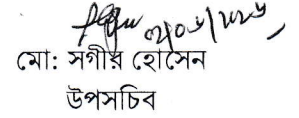 মো: সগীর হোসেন
উপসচিব